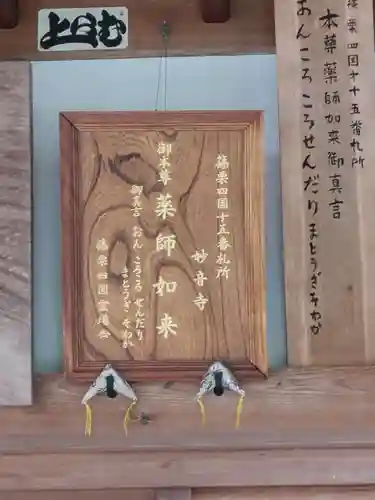 篠栗四国十五番札所
本尊薬師如来御真言
おんころころせんだりまとうぎそわか
篠栗四国十五番札所
妙音寺
御本尊 薬師如来
御真言 おん ころころ せんだり
まとうぎ そわか
篠栗四国霊場会